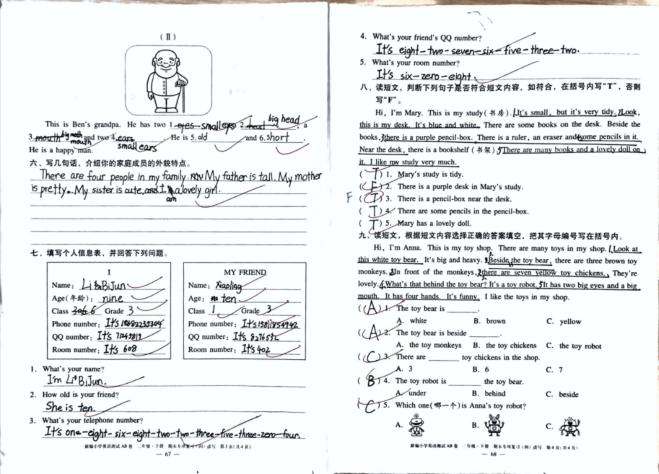 ( II )
This is Ben's grandpa. He has two 1. eyes small eyes 2. head big head, a
3. mouth big mouth and two 4. ears small ears He is 5. old and 6. short.
He is a happy man.
六、写几句话，介绍你的家庭成员的外貌特点。
There are four people in my family. My father is tall. My mother
is pretty. My sister is cute, and I am a lovely girl.
七、填写个人信息表，并回答下列问题。
I
Name: Li BiJun
Age(年龄): nine
Class Grade 3
Phone number: It's
QQ number: It's
Room number: It's 608
MY FRIEND
Name: Xiaoling
Age: ten
Class 1 Grade 3
Phone number: It's
QQ number: It's
Room number: It's 402
1. What's your name?
I'm Li BiJun.
2. How old is your friend?
She is ten.
3. What's your telephone number?
It's one-eight-six-eight-two-two-three-five-three-zero-four
— 67 —
4. What's your friend's QQ number?
It's eight-two-seven-six-five-three-two.
5. What's your room number?
It's six-zero-eight.
八、读短文，判断下列句子是否符合短文内容，如符合，在括号内写“T”，否则
写“F”。
Hi, I'm Mary. This is my study(书房). It's small, but it's very tidy. Look,
this is my desk. It's blue and white. There are some books on the desk. Beside the
books, there is a purple pencil-box. There is a ruler, an eraser and some pencils in it.
Near the desk, there is a bookshelf (书架). There are many books and a lovely doll on
it. I like my study very much.
( T ) 1. Mary's study is tidy.
( F ) 2. There is a purple desk in Mary's study.
F ( T ) 3. There is a pencil-box near the desk.
( T ) 4. There are some pencils in the pencil-box.
( T ) 5. Mary has a lovely doll.
九、读短文，根据短文内容选择正确的答案填空，把其字母编号写在括号内。
Hi, I'm Anna. This is my toy shop. There are many toys in my shop. Look at
this white toy bear. It's big and heavy. Beside the toy bear, there are three brown toy
monkeys. In front of the monkeys, there are seven yellow toy chickens. They're
lovely. What's that behind the toy bear? It's a toy robot. It has two big eyes and a big
mouth. It has four hands. It's funny. I like the toys in my shop.
( A ) 1. The toy bear is ______.
A. white B. brown C. yellow
( A ) 2. The toy bear is beside ______.
A. the toy monkeys B. the toy chickens C. the toy robot
( C ) 3. There are ______ toy chickens in the shop.
A. 3 B. 6 C. 7
( B ) 4. The toy robot is ______ the toy bear.
A. under B. behind C. beside
( C ) 5. Which one(哪一个) is Anna's toy robot?
A. B. C.
— 68 —